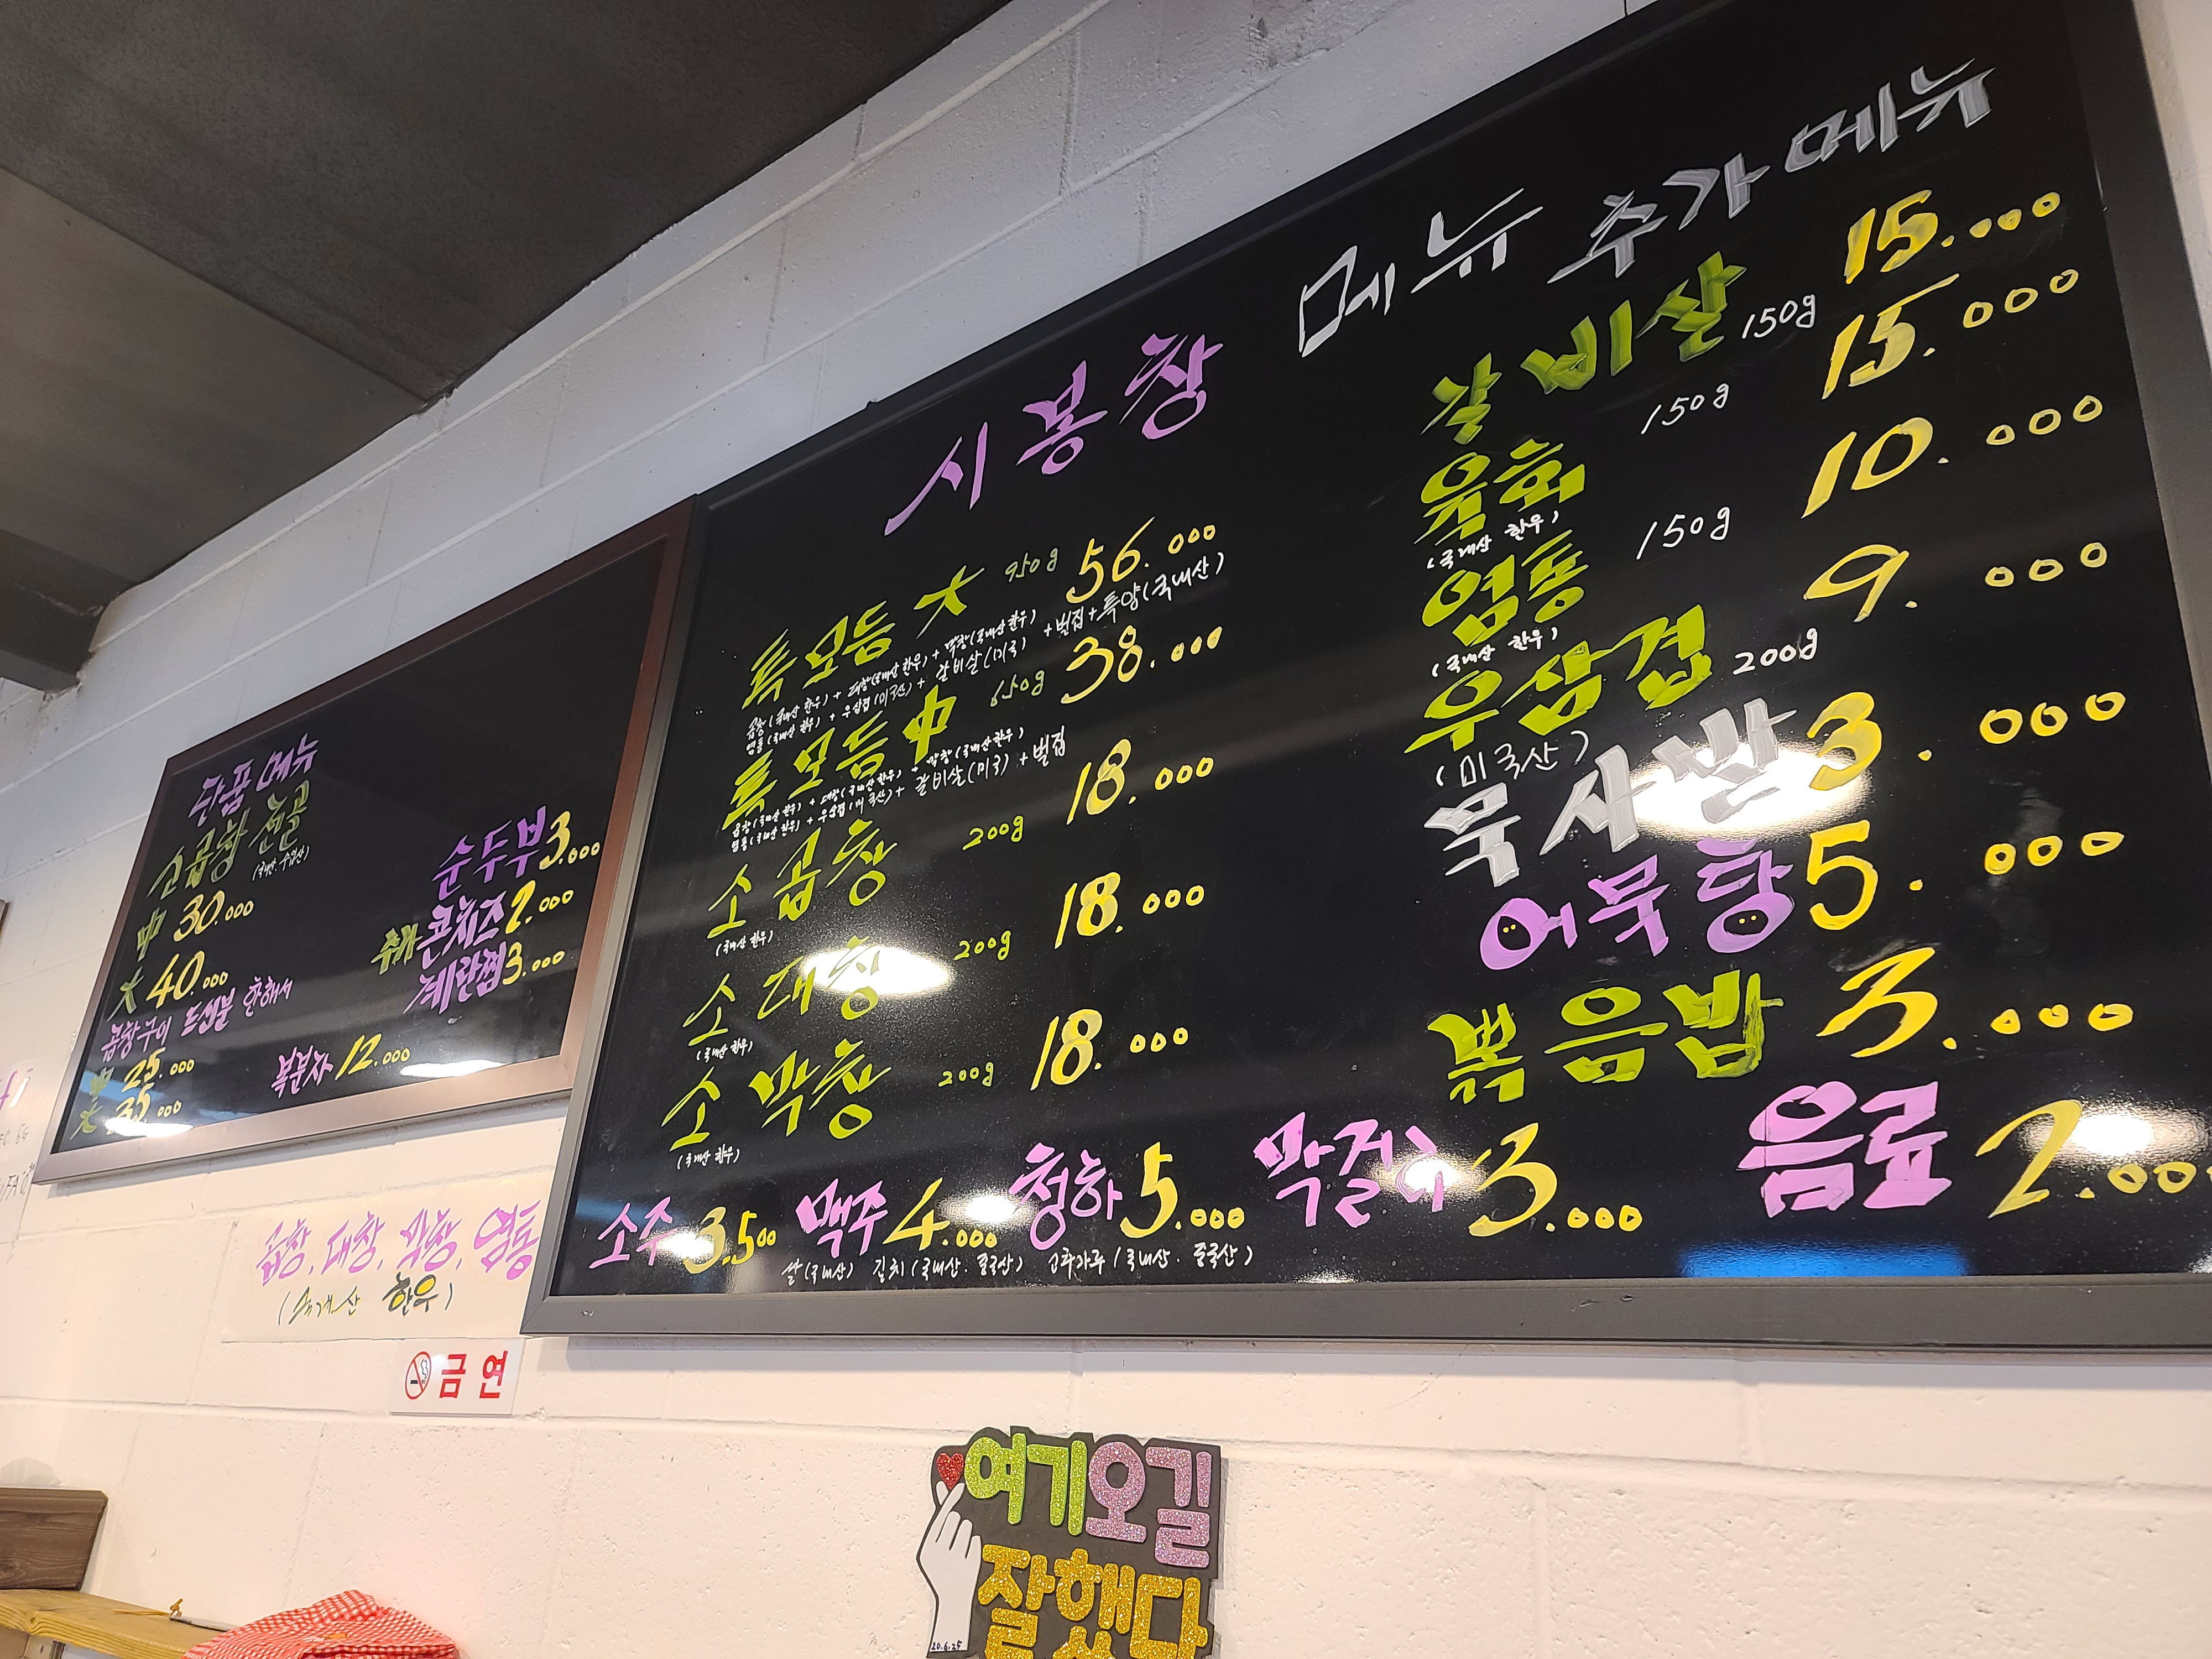 단품메뉴
소곱창전골
中 30.000
大 40.000
곱창구이 드신분 한해서
中 25.000
大 35.000
순두부 3.000
추가 콘치즈 2.000
계란찜 3.000
복분자 12.000
시봉창 메뉴
특모듬 大 950g 56.000
곱창(국내산 한우) + 대창(국내산 한우) + 막창(국내산 한우)
염통(국내산 한우) + 우삼겹(미국산) + 갈비살(미국) + 벌집 + 특양(국내산)
특모듬 中 650g 38.000
곱창(국내산 한우) + 대창(국내산 한우) + 막창(국내산 한우)
염통(국내산 한우) + 우삼겹(미국산) + 갈비살(미국) + 벌집
소곱창 200g 18.000
(국내산 한우)
소대창 200g 18.000
(국내산 한우)
소막창 200g 18.000
(국내산 한우)
추가메뉴
갈비살 150g 15.000
육회 150g 15.000
(국내산 한우)
염통 150g 10.000
(국내산 한우)
우삼겹 200g 9.000
(미국산)
묵사발 3.000
어묵탕 5.000
볶음밥 3.000
소주 3.500 맥주 4.000 청하 5.000 막걸리 3.000 음료 2.00
쌀(국내산) 김치(국내산. 중국산) 고추가루(국내산. 중국산)
곱창, 대창, 막창, 염통
(국내산 한우)
금연
여기오길
잘했다
20.6.25